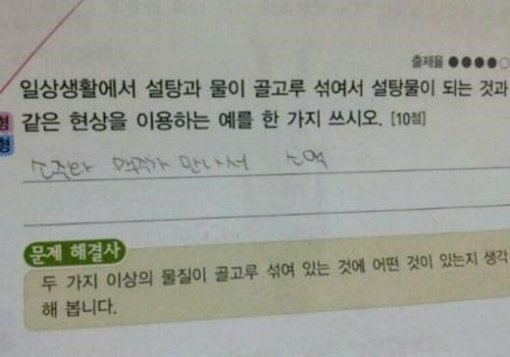 출제율 ●●●●○
일상생활에서 설탕과 물이 골고루 섞여서 설탕물이 되는 것과
형 같은 현상을 이용하는 예를 한 가지 쓰시오. [10점]
형
소주와 맥주가 만나서 소맥
문제 해결사
두 가지 이상의 물질이 골고루 섞여 있는 것에 어떤 것이 있는지 생각
해 봅니다.